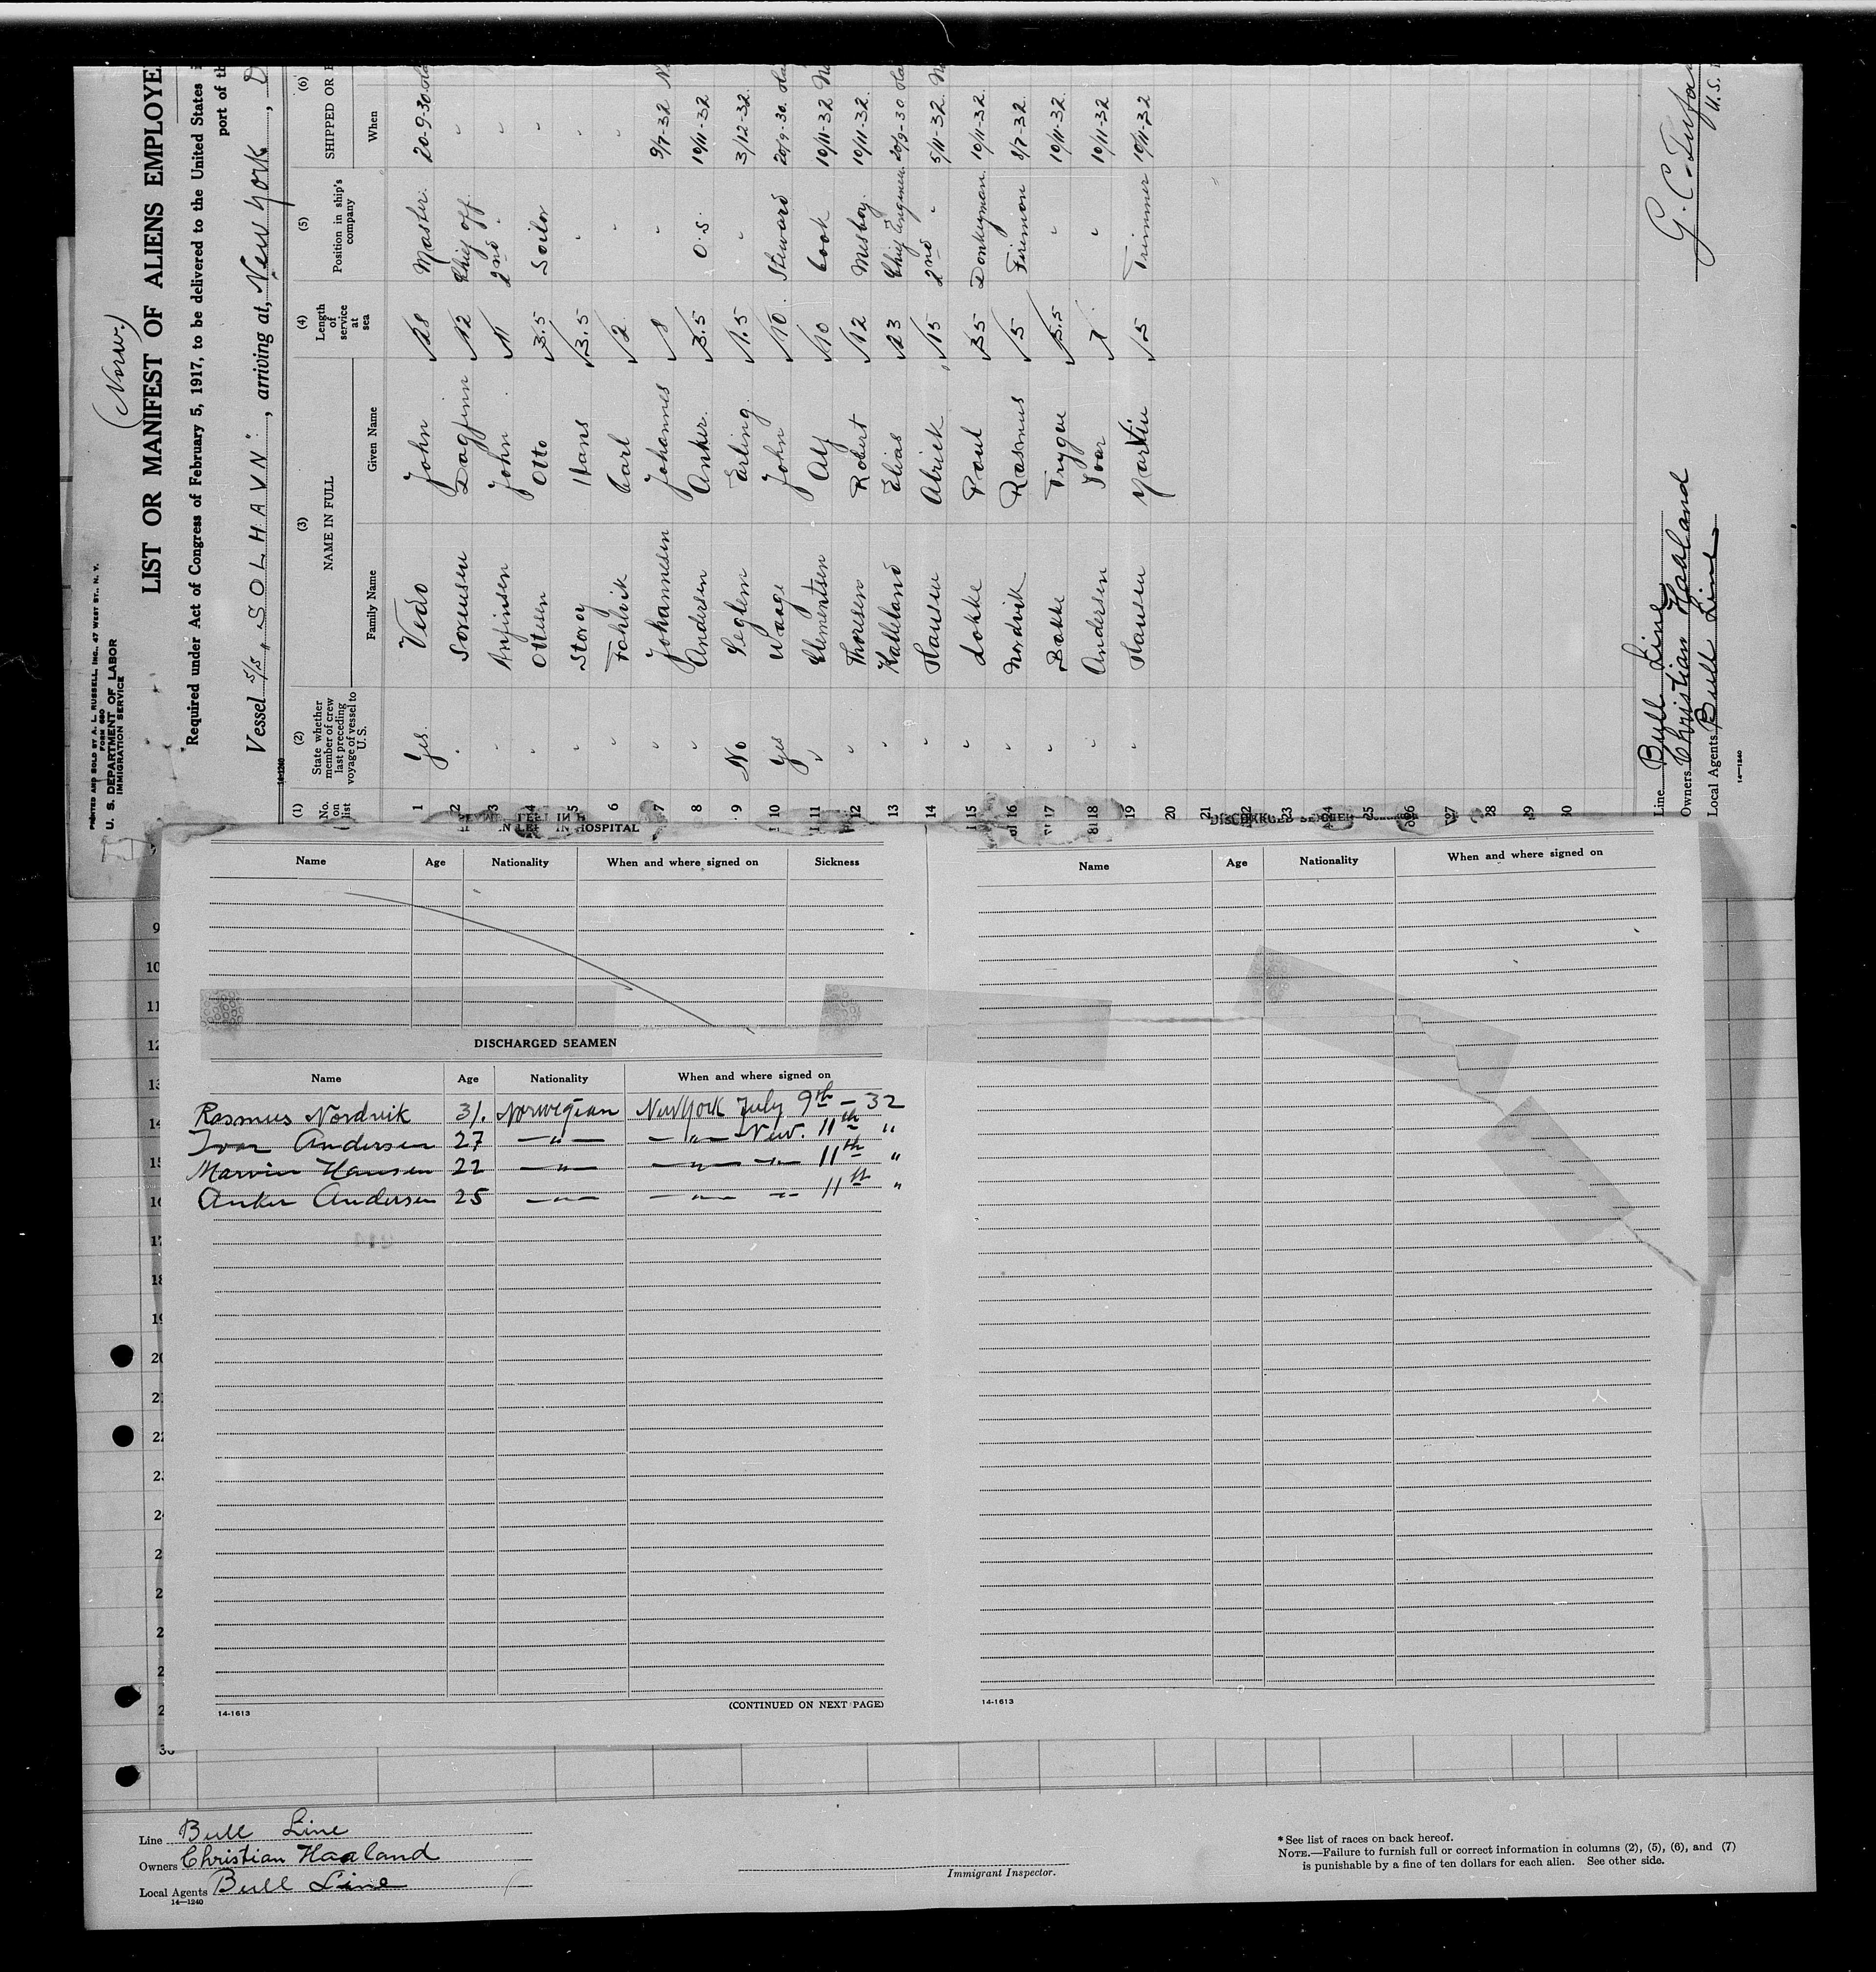 PRINTED AND SOLD BY A. L. RUSSELL, INC., 47 WEST ST., N. Y.
FORM 680
U. S. DEPARTMENT OF LABOR
IMMIGRATION SERVICE
(Norw.)
LIST OR MANIFEST OF ALIENS EMPLOYE
Required under Act of Congress of February 5, 1917, to be delivered to the United States i
port of th
Vessel S/S "SOLHAVN", arriving at New York, D
14-1240
(1) (2) (3) (4) (5) (6)
No. on list State whether member of crew last preceding voyage of vessel to U.S. NAME IN FULL Length of service at sea Position in ship's company SHIPPED OR E
Family Name Given Name When
1 Yes. Vedo John 28 Master. 20-9-30
2 " Sorensen Dagfinn 12 Chief off. "
3 " Arfinsen John 11 2nd " "
4 " Ottesen Otto 3.5 Sailor "
5 " Storoy Hans 3.5 " "
6 " Fohlvik Carl 2 " "
7 " Johannesen Johannes 8 " 9/7-32
8 " Andersen Anker. 3.5 O.S. 10/11-32
9 No Seglem Erling. 1.5 " 3/12-32.
10 Yes Waage John 10. Steward 20/9-30.
11 " Clementsen Alf 10 Cook 10/11-32
12 " Thoresen Robert 12 Messboy. 10/11-32.
13 " Kalleland Elias 23 Chief Engineer 20/9-30
14 " Hansen Alrick 15 2nd " 5/11-32.
15 " Lokke Paul 35 Donkeyman. 10/11-32.
16 " Nordvik Rasmus 5 Fireman 8/7-32.
17 " Bakke Trygve 5.5 " 10/11-32.
18 " Andersen Ivar 7 " 10/11-32
19 " Hansen Martin 5 Trimmer 10/11-32
20
21
22
23
24
25
26
27
28
29
30
Line Bull Line
Owners Christian Haaland
Local Agents Bull Line
14-1240
U.S.
IN HOSPITAL
Name Age Nationality When and where signed on Sickness
DISCHARGED SEAMEN
Name Age Nationality When and where signed on
Rasmus Nordvik 31. Norwegian New York July 9th - 32
Ivar Andersen 27 —"— —"— Nov. 11th "
Marvin Hansen 22 —"— —"— —"— 11th "
Anker Andersen 25 —"— —"— —"— 11th "
(CONTINUED ON NEXT PAGE)
14-1613
Name Age Nationality When and where signed on
14-1613
9
10
11
12
13
14
15
17
18
30
Line Bull Line
Owners Christian Haaland
Local Agents Bull Line
14—1240
Immigrant Inspector.
* See list of races on back hereof.
NOTE.—Failure to furnish full or correct information in columns (2), (5), (6), and (7)
is punishable by a fine of ten dollars for each alien. See other side.